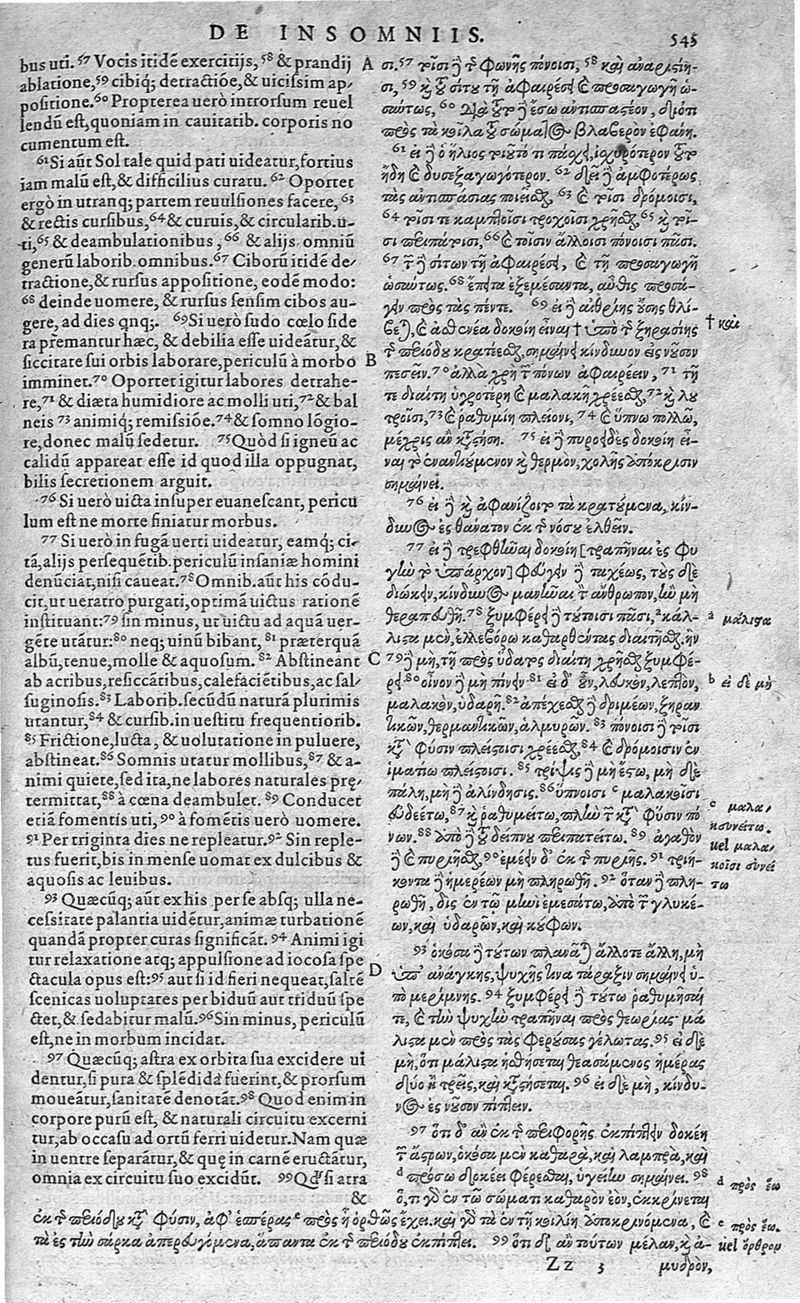 DE INSOMNIIS.
545
bus uti. 57 Vocis itidē exercitijs, 58 & prandij
ablatione, 59 cibiq; detractiōe, & uicissim ap/
positione. 60 Propterea uerò introrsum reuel
lendū est, quoniam in cauitatib. corporis no
cumentum est.
61 Si aūt Sol tale quid pati uideatur, fortius
iam malū est, & difficilius curatu. 62 Oportet
ergò in utranq; partem reuulsiones facere, 63
& rectis cursibus, 64 & curuis, & circularib. u-
ti, 65 & deambulationibus, 66 & alijs omniū
generū laborib. omnibus. 67 Ciborū itidē de/
tractione, & rursus appositione, eodē modo:
68 deinde uomere, & rursus sensim cibos au/
gere, ad dies qnq;. 69 Si uerò sudo cœlo side
ra premantur hæc, & debilia esse uideātur, &
siccitate sui orbis laborare, periculū à morbo
imminet. 70 Oportet igitur labores detrahe-
re, 71 & diæta humidiore ac molli uti, 72 & bal
neis 73 animiq; remissiōe. 74 & somno lōgio-
re, donec malū sedetur. 75 Quòd si igneū ac
calidū appareat esse id quod illa oppugnat,
bilis secretionem arguit.
76 Si uerò uicta insuper euanescant, pericu
lum est ne morte finiatur morbus.
77 Si uerò in fugā uerti uideatur, eamq; ci-
tā, alijs persequētib. periculū insaniæ homini
denūciat, nisi caueat. 78 Omnib. aūt his cōdu-
cit, ut ueratro purgati, optimā uictus rationē
instituant: 79 sin minus, ut uictu ad aquā uer-
gēte utātur: 80 neq; uinū bibant, 81 præterquā
albū, tenue, molle & aquosum. 82 Abstineant
ab acribus, resiccātibus, calefaciētibus, ac sal/
suginosis. 83 Laborib. secūdū naturā plurimis
utantur, 84 & cursib. in uestitu frequentiorib.
85 Frictione, lucta, & uolutatione in puluere,
abstineat. 86 Somnis utatur mollibus, 87 & a-
nimi quiete, sed ita, ne labores naturales prę
termittat, 88 à cœna deambulet. 89 Conducet
etiā fomentis uti, 90 à fomētis uerò uomere.
91 Per triginta dies ne repleatur. 92 Sin reple-
tus fuerit, bis in mense uomat ex dulcibus &
aquosis ac leuibus.
93 Quæcūq; aūt ex his per se absq; ulla ne-
cessitate palantia uidētur, animæ turbationē
quandā propter curas significāt. 94 Animi igi
tur relaxatione atq; appulsione ad iocosa spe
ctacula opus est: 95 aut si id fieri nequeat, saltē
scenicas uoluptates per biduū aut triduū spe
ctet, & sedabitur malū. 96 Sin minus, periculū
est, ne in morbum incidat.
97 Quæcūq; astra ex orbita sua excidere ui
dentur, si pura & splēdida fuerint, & prorsum
moueātur, sanitatē denotāt. 98 Quod enim in
corpore purū est, & naturali circuitu excerni
tur, ab occasu ad ortū ferri uidetur. Nam quæ
in uentre separātur, & quę in carnē eructātur,
omnia ex circuitu suo excidūt. 99 Qd' si atra
&
A
B
C
D
σι. 57 τῇσι δὲ τ̃ φωνῆς πόνοισι, 58 καὶ ἀναρίστιη-
σι, 59 κỳ τοῦ σίτου τῇ ἀφαιρέσει ϗ προσαγωγῇ ὡ-
σαύτως, 60 Διὰ τοῦτο δὲ ἔσω ἀντισπαστέον, διότι
πρὸς τὰ κοῖλα τοῦ σώματος βλαβερὸν ἐφάνη.
61 εἰ δὲ ὁ ἥλιος τοιοῦτό τι πάσχει, ἰσχυρότερον τοῦτο
ἤδη ϗ δυσεξαγωγότερον. 62 δεῖ δὲ ἀμφοτέρως
τὰς ἀντισπάσιας ποιέεσθαι, 63 ϗ τοῖσι δρόμοισι,
64 τοῖσί τε καμπτοῖσι τροχοῖσι χρῆσθαι, 65 ϗ τοῖ-
σι περιπάτοισι, 66 ϗ τοῖσιν ἄλλοισι πόνοισι πᾶσι.
67 τῶν δὲ σίτων τῇ ἀφαιρέσει, ϗ τῇ προσαγωγῇ
ὡσαύτως. 68 ἔπειτα ἐξεμέσαντα, αὖθις προσά-
γειν πρὸς τὰς πέντε. 69 εἰ δὲ αἰθρίης οὔσης θλί-
βεται, ϗ ἀσθενέα δοκέῃ εἶναι † ὑπὸ τῆς ξηρασίης
τῆς περιόδου κρατέεσθαι, σημαίνει κίνδυνον εἰς νοῦσον
πεσεῖν. 70 ἀλλὰ χρὴ τῶν πόνων ἀφαιρέειν, 71 τῇ
τε διαίτῃ ὑγροτέρῃ ϗ μαλακῇ χρέεσθαι, 72 ϗ λου
τροῖσι, 73 ϗ ῥαθυμίῃ πλείονι, 74 ϗ ὕπνῳ πολλῷ,
μέχρις ἂν καταστήσῃ. 75 εἰ δὲ πυροειδὲς δοκέῃ εἶ-
ναι τὸ ἐναντιούμενον ϗ θερμὸν, χολῆς ἀπόκρισιν
σημαίνει.
76 εἰ δὲ ϗ ἀφανίζοιτο τὰ κρατούμενα, κίν-
δυνος ἐς θάνατον ἐκ τῆς νόσου ἐλθεῖν.
77 εἰ δὲ τρεφθῆναι δοκέῃ [τραπῆναι ἐς φυ
γὴν τὸ ὑπάρχον] φεύγειν δὲ ταχέως, τοὺς δὲ
διώκειν, κίνδυνος μανῆναι τὸν ἄνθρωπον, ἢν μὴ
θεραπευθῇ. 78 ξυμφέρει δὲ τούτοισι πᾶσι, a κάλ-
λιστα μὲν, ἑλλεβόρῳ καθαρθέντας διαιτῆσθαι, ἢν
79 δὲ μὴ, τῇ πρὸς ὕδατος διαίτῃ χρῆσθαι ξυμφέ-
ρει. 80 οἶνον δὲ μὴ πίνειν 81 εἰ δ' οὖν, λευκὸν, λεπτὸν,
μαλακὸν, ὑδαρῆ. 82 ἀπέχεσθαι δὲ δριμέων, ξηραν
τικῶν, θερμαντικῶν, ἁλμυρῶν. 83 πόνοισι δὲ τοῖσι
κατὰ φύσιν πλείστοισι χρεέσθω, 84 ϗ δρόμοισιν ἐν
ἱματίῳ πλείστοισι. 85 τρίψις δὲ μὴ ἔστω, μὴ δὲ
πάλη, μὴ δὲ ἀλίνδησις. 86 ὕπνοισι c μαλακοῖσι
εὑδέετω, 87 ϗ ῥαθυμείτω, πλὴν τῶν κατὰ φύσιν πό
νων. 88 ἀπὸ δὲ τοῦ δείπνου περιπατείτω. 89 ἀγαθὸν
δὲ ϗ πυριῆσθαι, 90 ἐμέειν δ' ἐκ τῆς πυρίης. 91 τριή-
κοντα δὲ ἡμερέων μὴ πληρωθῇ. 92 ὅταν δὲ πλη-
ρωθῇ, δὶς ἐν τῷ μηνὶ ἐμεσάτω, ἀπὸ τῶν γλυκέ-
ων, καὶ ὑδαρῶν, καὶ κούφων.
93 ὁκόσα δὲ τούτων πλανᾶται ἄλλοτε ἄλλῃ, μὴ
ὑπ' ἀνάγκης, ψυχῆς τινα τάραξιν σημαίνει ὑ-
πὸ μερίμνης. 94 ξυμφέρει δὲ τούτῳ ῥαθυμῆσαί
τε, ϗ τὴν ψυχὴν τραπῆναι πρὸς θεωρίας· μά
λιστα μὲν πρὸς τὰς φερούσας γέλωτας. 95 εἰ δὲ
μὴ, ὅτι μάλιστα ἡσθήσεται θεασάμενος ἡμέρας
δύο ἢ τρεῖς, καὶ καταστήσεται. 96 εἰ δὲ μὴ, κίνδυ-
νος ἐς νοῦσον πίπτειν.
97 ὅτι δ' ἂν ἐκ τῆς περιφορῆς ἐκπίπτειν δοκέῃ
τῶν ἄστρων, ὁκόσα μὲν καθαρὰ, καὶ λαμπρὰ, καὶ
d πρόσω δοκέει φέρεσθαι, ὑγείην σημαίνει. 98
ὅ, τι γὰρ ἐν τῷ σώματι καθαρὸν ἐὸν, ἐκκρίνεται
ἐκ τῆς περιόδου κατὰ φύσιν, ἀφ' ἑσπέρας e πρὸς ἠῶ ὀρθῶς ἔχει. καὶ γὰρ τὰ ἐν τῇ κοιλίῃ ἀποκρινόμενα, ϗ
τὰ ἐς τὴν σάρκα ἀπερευγόμενα, ἅπαντα ἐκ τῆς περιόδου ἐκπίπτει. 99 ὅτι δ' ἂν τούτων μέλαν, ϗ ἀ-
Zz 3 μυδρὸν,
† καὶ
a μάλιστα
b εἰ δὲ μὴ
c μαλα
κυνείτω.
uel μαλα
κοῖσι συνεί
τω
d πρὸς ἕω
e πρὸς ἕω.
uel ὄρθρου